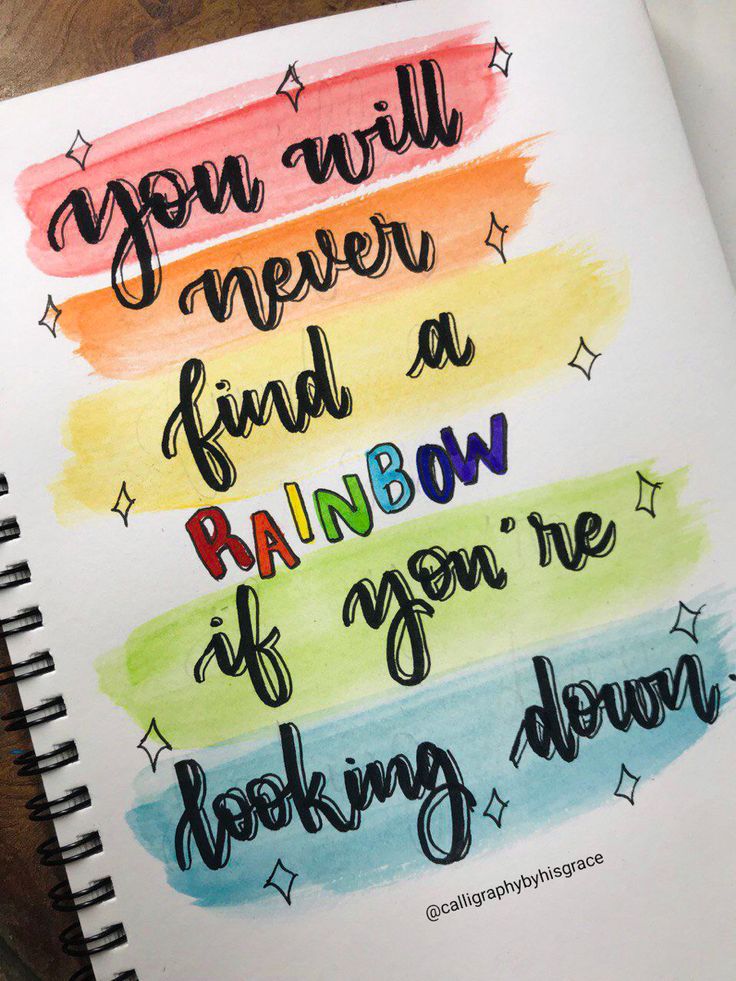 you will
never
find a
RAINBOW
if you're
looking down.
@calligraphybyhisgrace